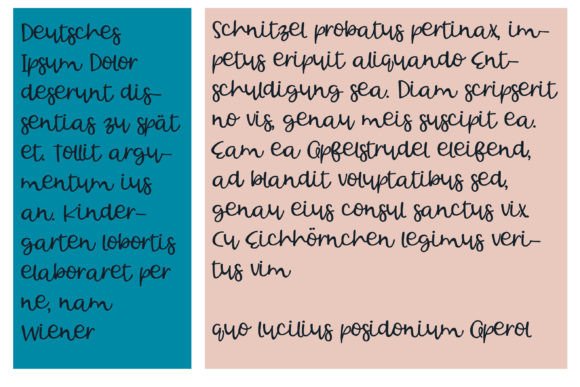 Deutsches
Ipsum Dolor
deserunt dis-
sentias zu spät
et. Tollit argu-
mentum ius
an. Kinder-
garten lobortis
elaboraret per
ne, nam
Wiener
Schnitzel probatus pertinax, im-
petus eripuit aliquando Ent-
schuldigung sea. Diam scripserit
no vis, genau meis suscipit ea.
Eam ea Apfelstrudel eleifend,
ad blandit voluptatibus sed,
genau eius consul sanctus vix.
Cu Eichhörnchen legimus veri-
tus vim
quo lucilius posidonium Aperol